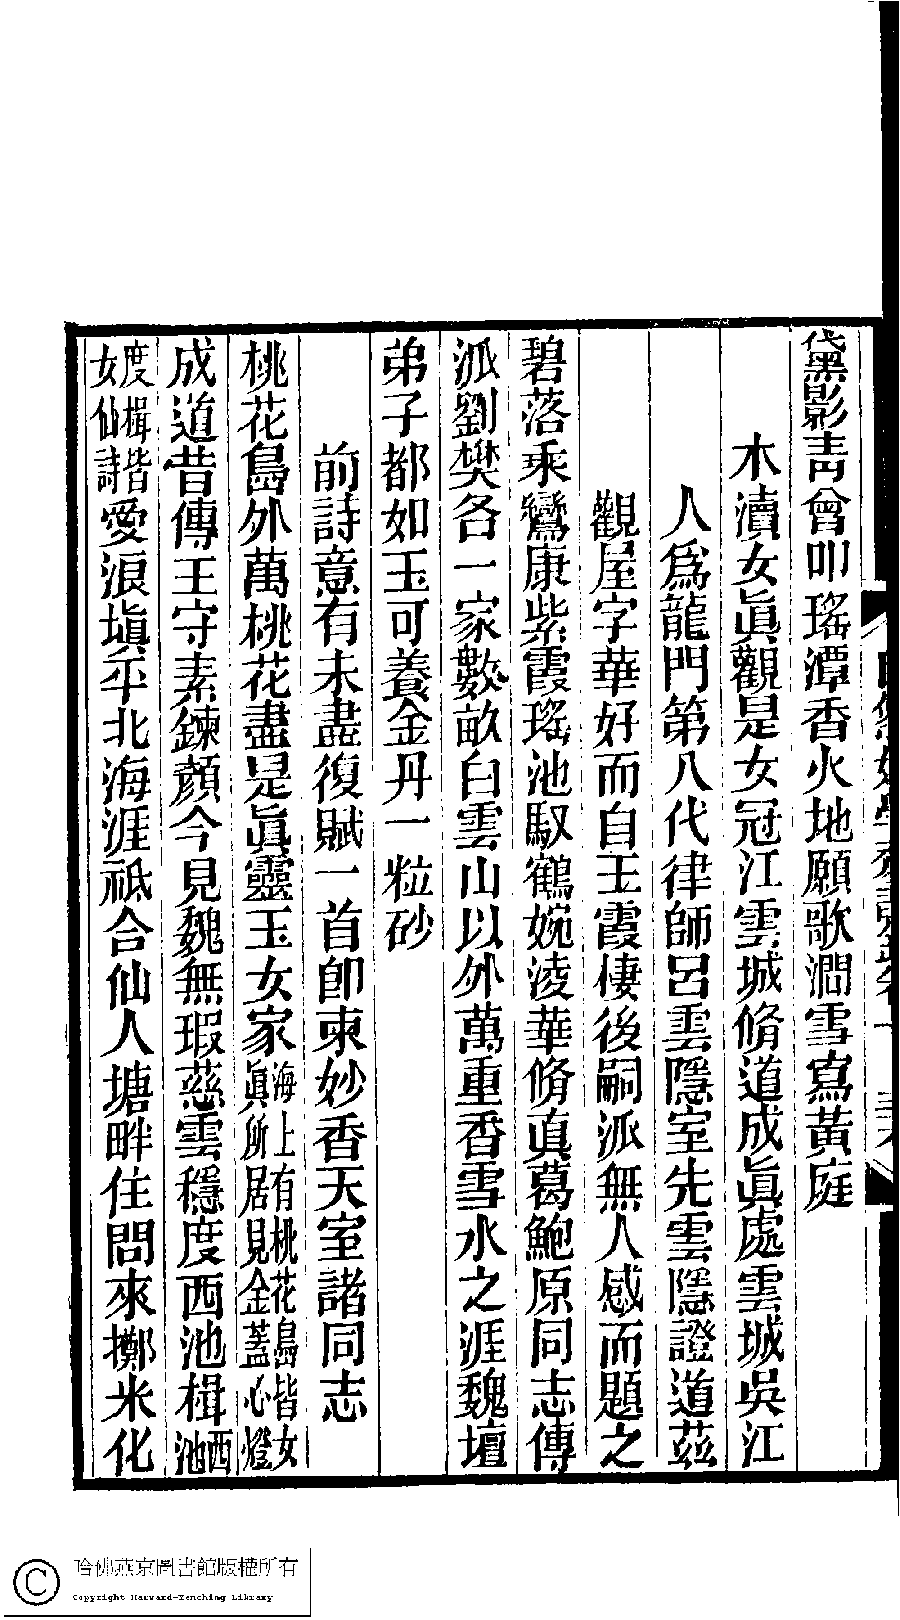 黛影青曾叩瑤潭香火地願歌澗雪寫黃庭
木瀆女眞觀是女冠江雲城脩道成眞處雲城吳江
人爲龍門第八代律師呂雲隱室先雲隱證道茲
觀屋字華好而自王霞棲後嗣派無人感而題之
碧落乘鸞康紫霞瑤池馭鶴婉淩華脩眞葛鮑原同志傳
派劉樊各一家數畝白雲山以外萬重香雪水之涯魏壇
弟子都如玉可養金丹一粒砂
前詩意有未盡復賦一首卽柬妙香天室諸同志
桃花島外萬桃花盡是眞靈玉女家海上有桃花島皆女眞所居見金蓋心燈
成道昔傳王守素鍊顏今見魏無瑕慈雲穩度西池楫西池
度楫皆女仙詩愛浪塡平北海涯祗合仙人塘畔住問來擲米化
哈佛燕京圖書館版權所有
Copyright Harvard-Yenching Library